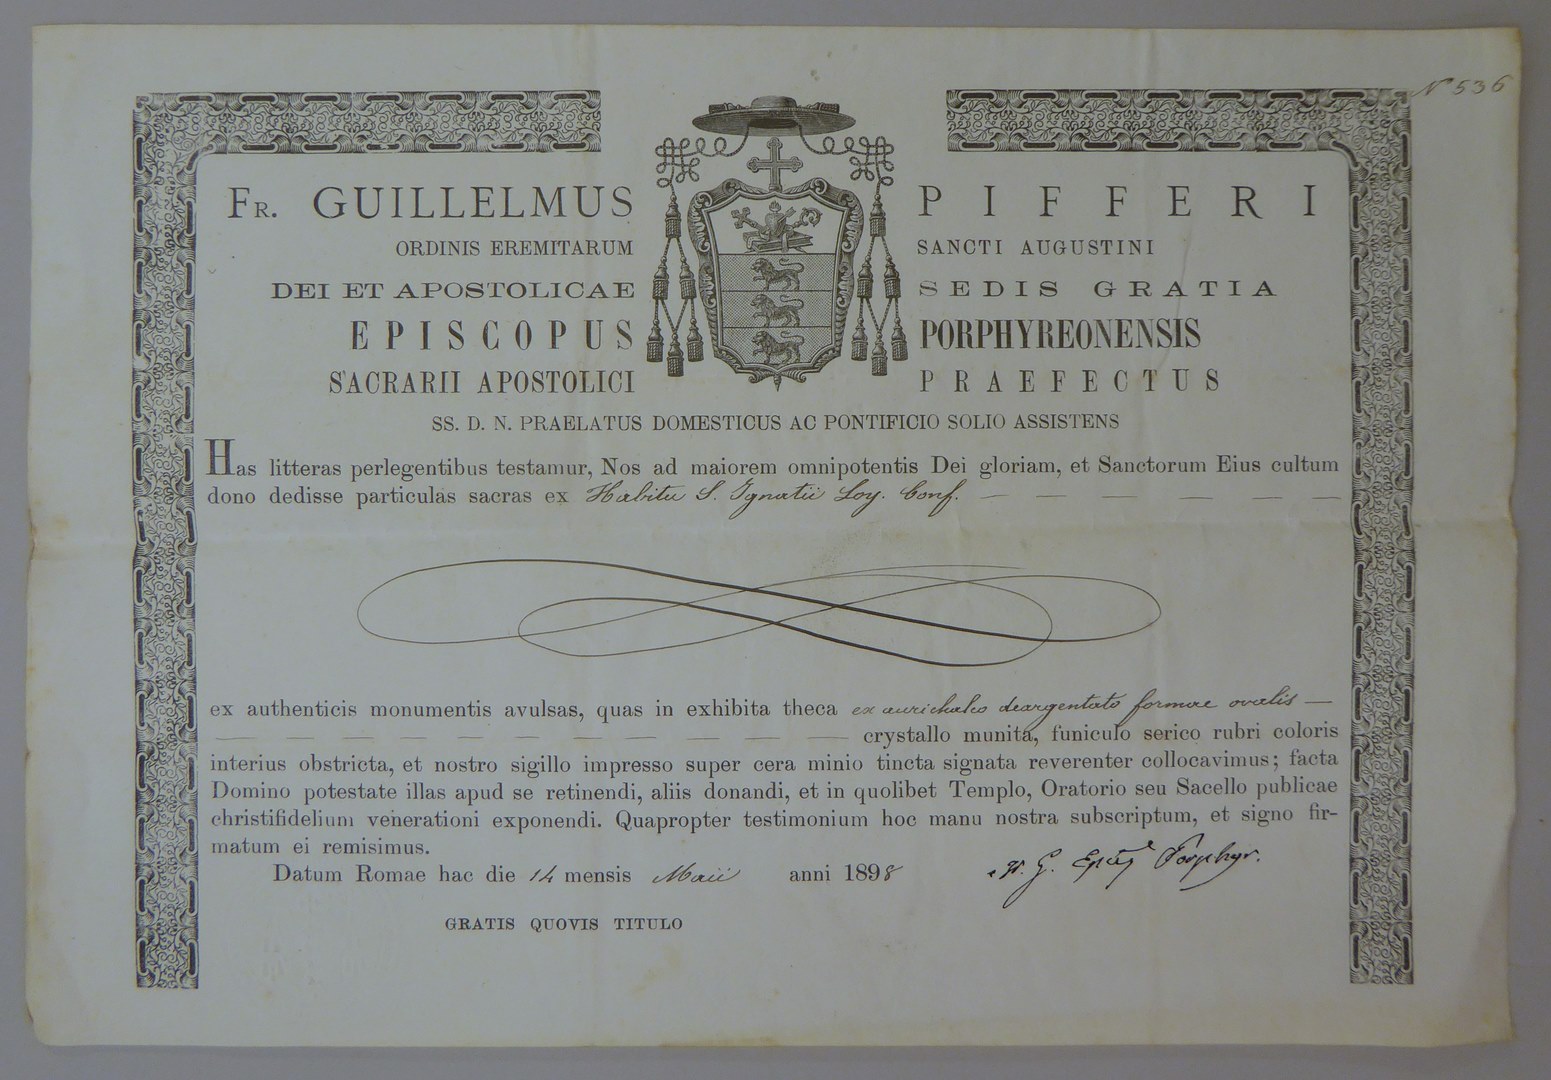 Nº 536
FR. GUILLELMUS PIFFERI
ORDINIS EREMITARUM SANCTI AUGUSTINI
DEI ET APOSTOLICAE SEDIS GRATIA
EPISCOPUS PORPHYREONENSIS
SACRARII APOSTOLICI PRAEFECTUS
SS. D. N. PRAELATUS DOMESTICUS AC PONTIFICIO SOLIO ASSISTENS
Has litteras perlegentibus testamur, Nos ad maiorem omnipotentis Dei gloriam, et Sanctorum Eius cultum
dono dedisse particulas sacras ex Habitu S. Ignatii Loy. Conf.
ex authenticis monumentis avulsas, quas in exhibita theca ex aurichalco deargentato formae ovalis —
crystallo munita, funiculo serico rubri coloris
interius obstricta, et nostro sigillo impresso super cera minio tincta signata reverenter collocavimus; facta
Domino potestate illas apud se retinendi, aliis donandi, et in quolibet Templo, Oratorio seu Sacello publicae
christifidelium venerationi exponendi. Quapropter testimonium hoc manu nostra subscriptum, et signo fir-
matum ei remisimus.
Datum Romae hac die 14 mensis Maii anni 1898 G. Porphyr.
GRATIS QUOVIS TITULO